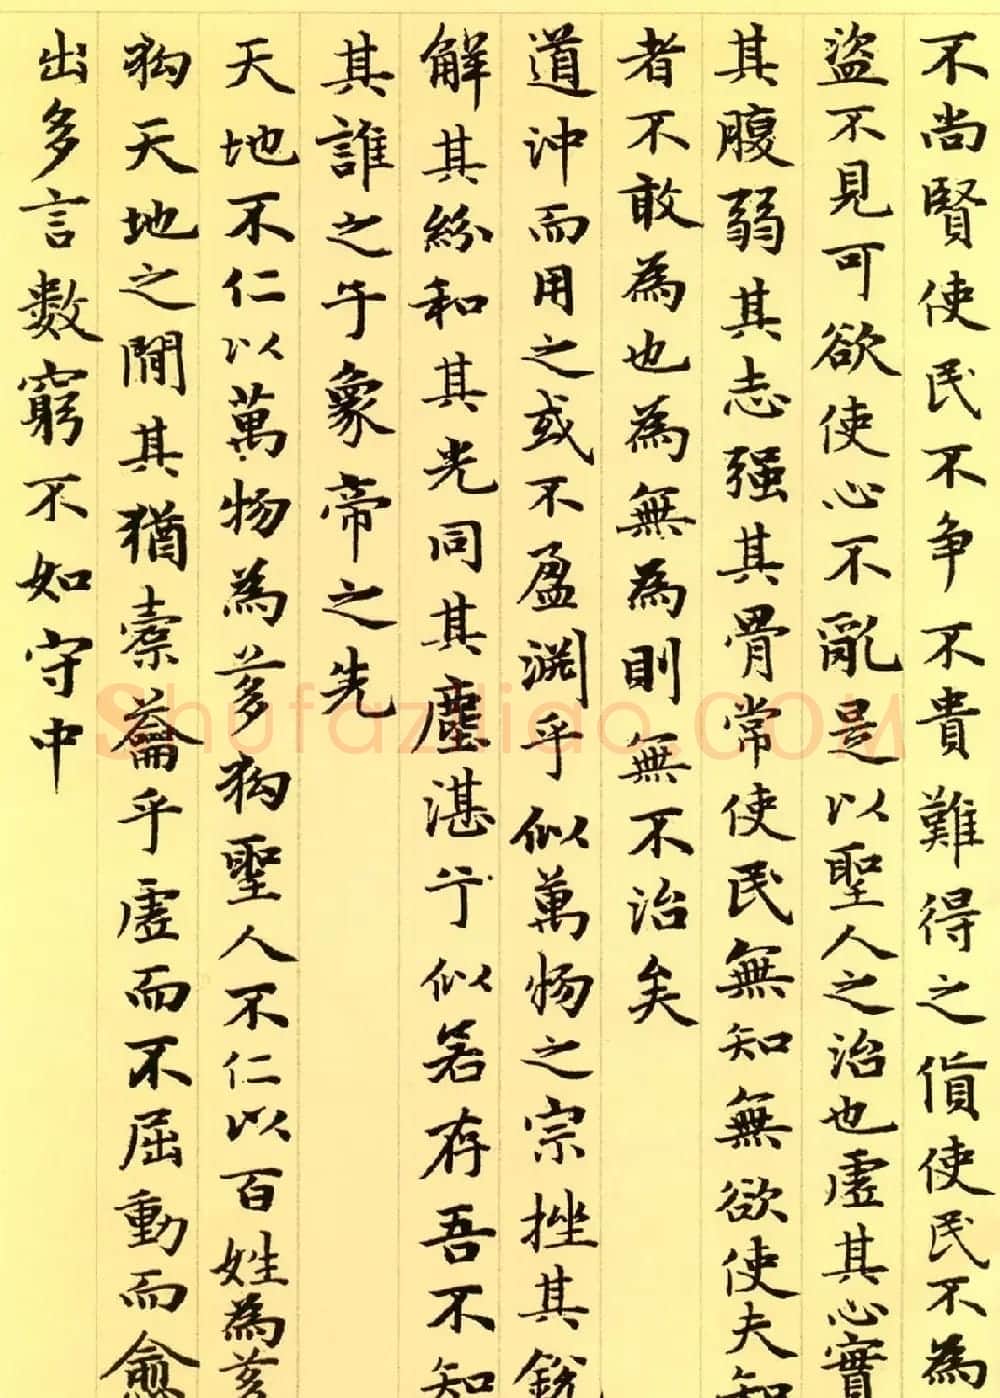 不尚賢使民不争不貴難得之貨使民不為
盜不見可欲使心不亂是以聖人之治也虛其心實
其腹弱其志强其骨常使民無知無欲使夫知
者不敢為也為無為則無不治矣
道沖而用之或不盈淵乎似萬物之宗挫其銳
解其紛和其光同其塵湛兮似若存吾不知
其誰之子象帝之先
天地不仁以萬物為芻狗聖人不仁以百姓為芻
狗天地之間其猶橐籥乎虛而不屈動而愈
出多言數窮不如守中
Shufaziliao.COM